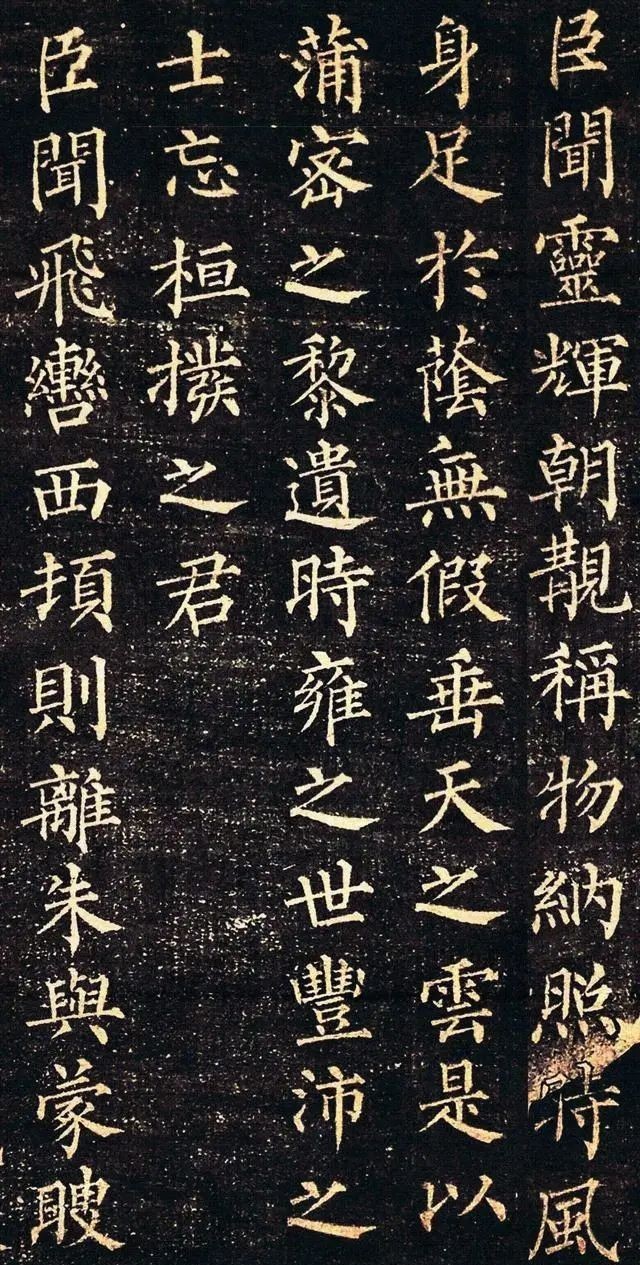 臣聞靈輝朝覯稱物納照時風
身足於蔭無假垂天之雲是以
蒲密之黎遺時雍之世豐沛之
士忘桓撥之君
臣聞飛轡西頓則離朱與蒙瞍